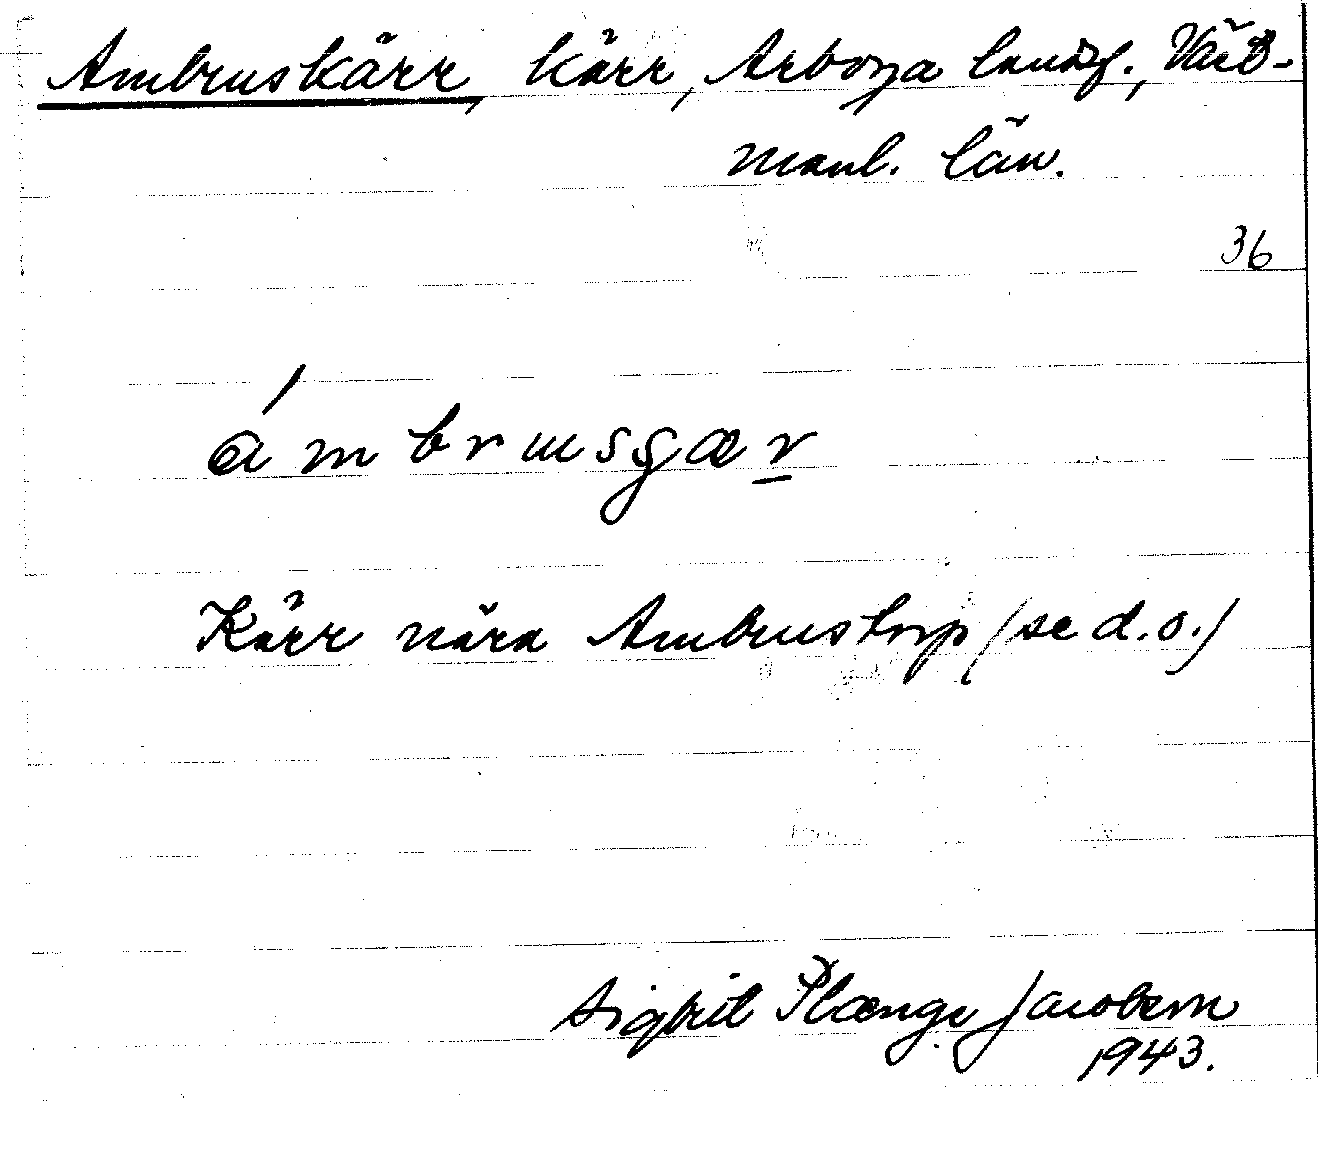 Ambruskärr, kärr, Arboga landsf., Väst-
manl. län.
36
ámbrusgær
Kärr nära Ambrustorp (se d.o.)
Sigbrit Plænge Jacobson
1943.